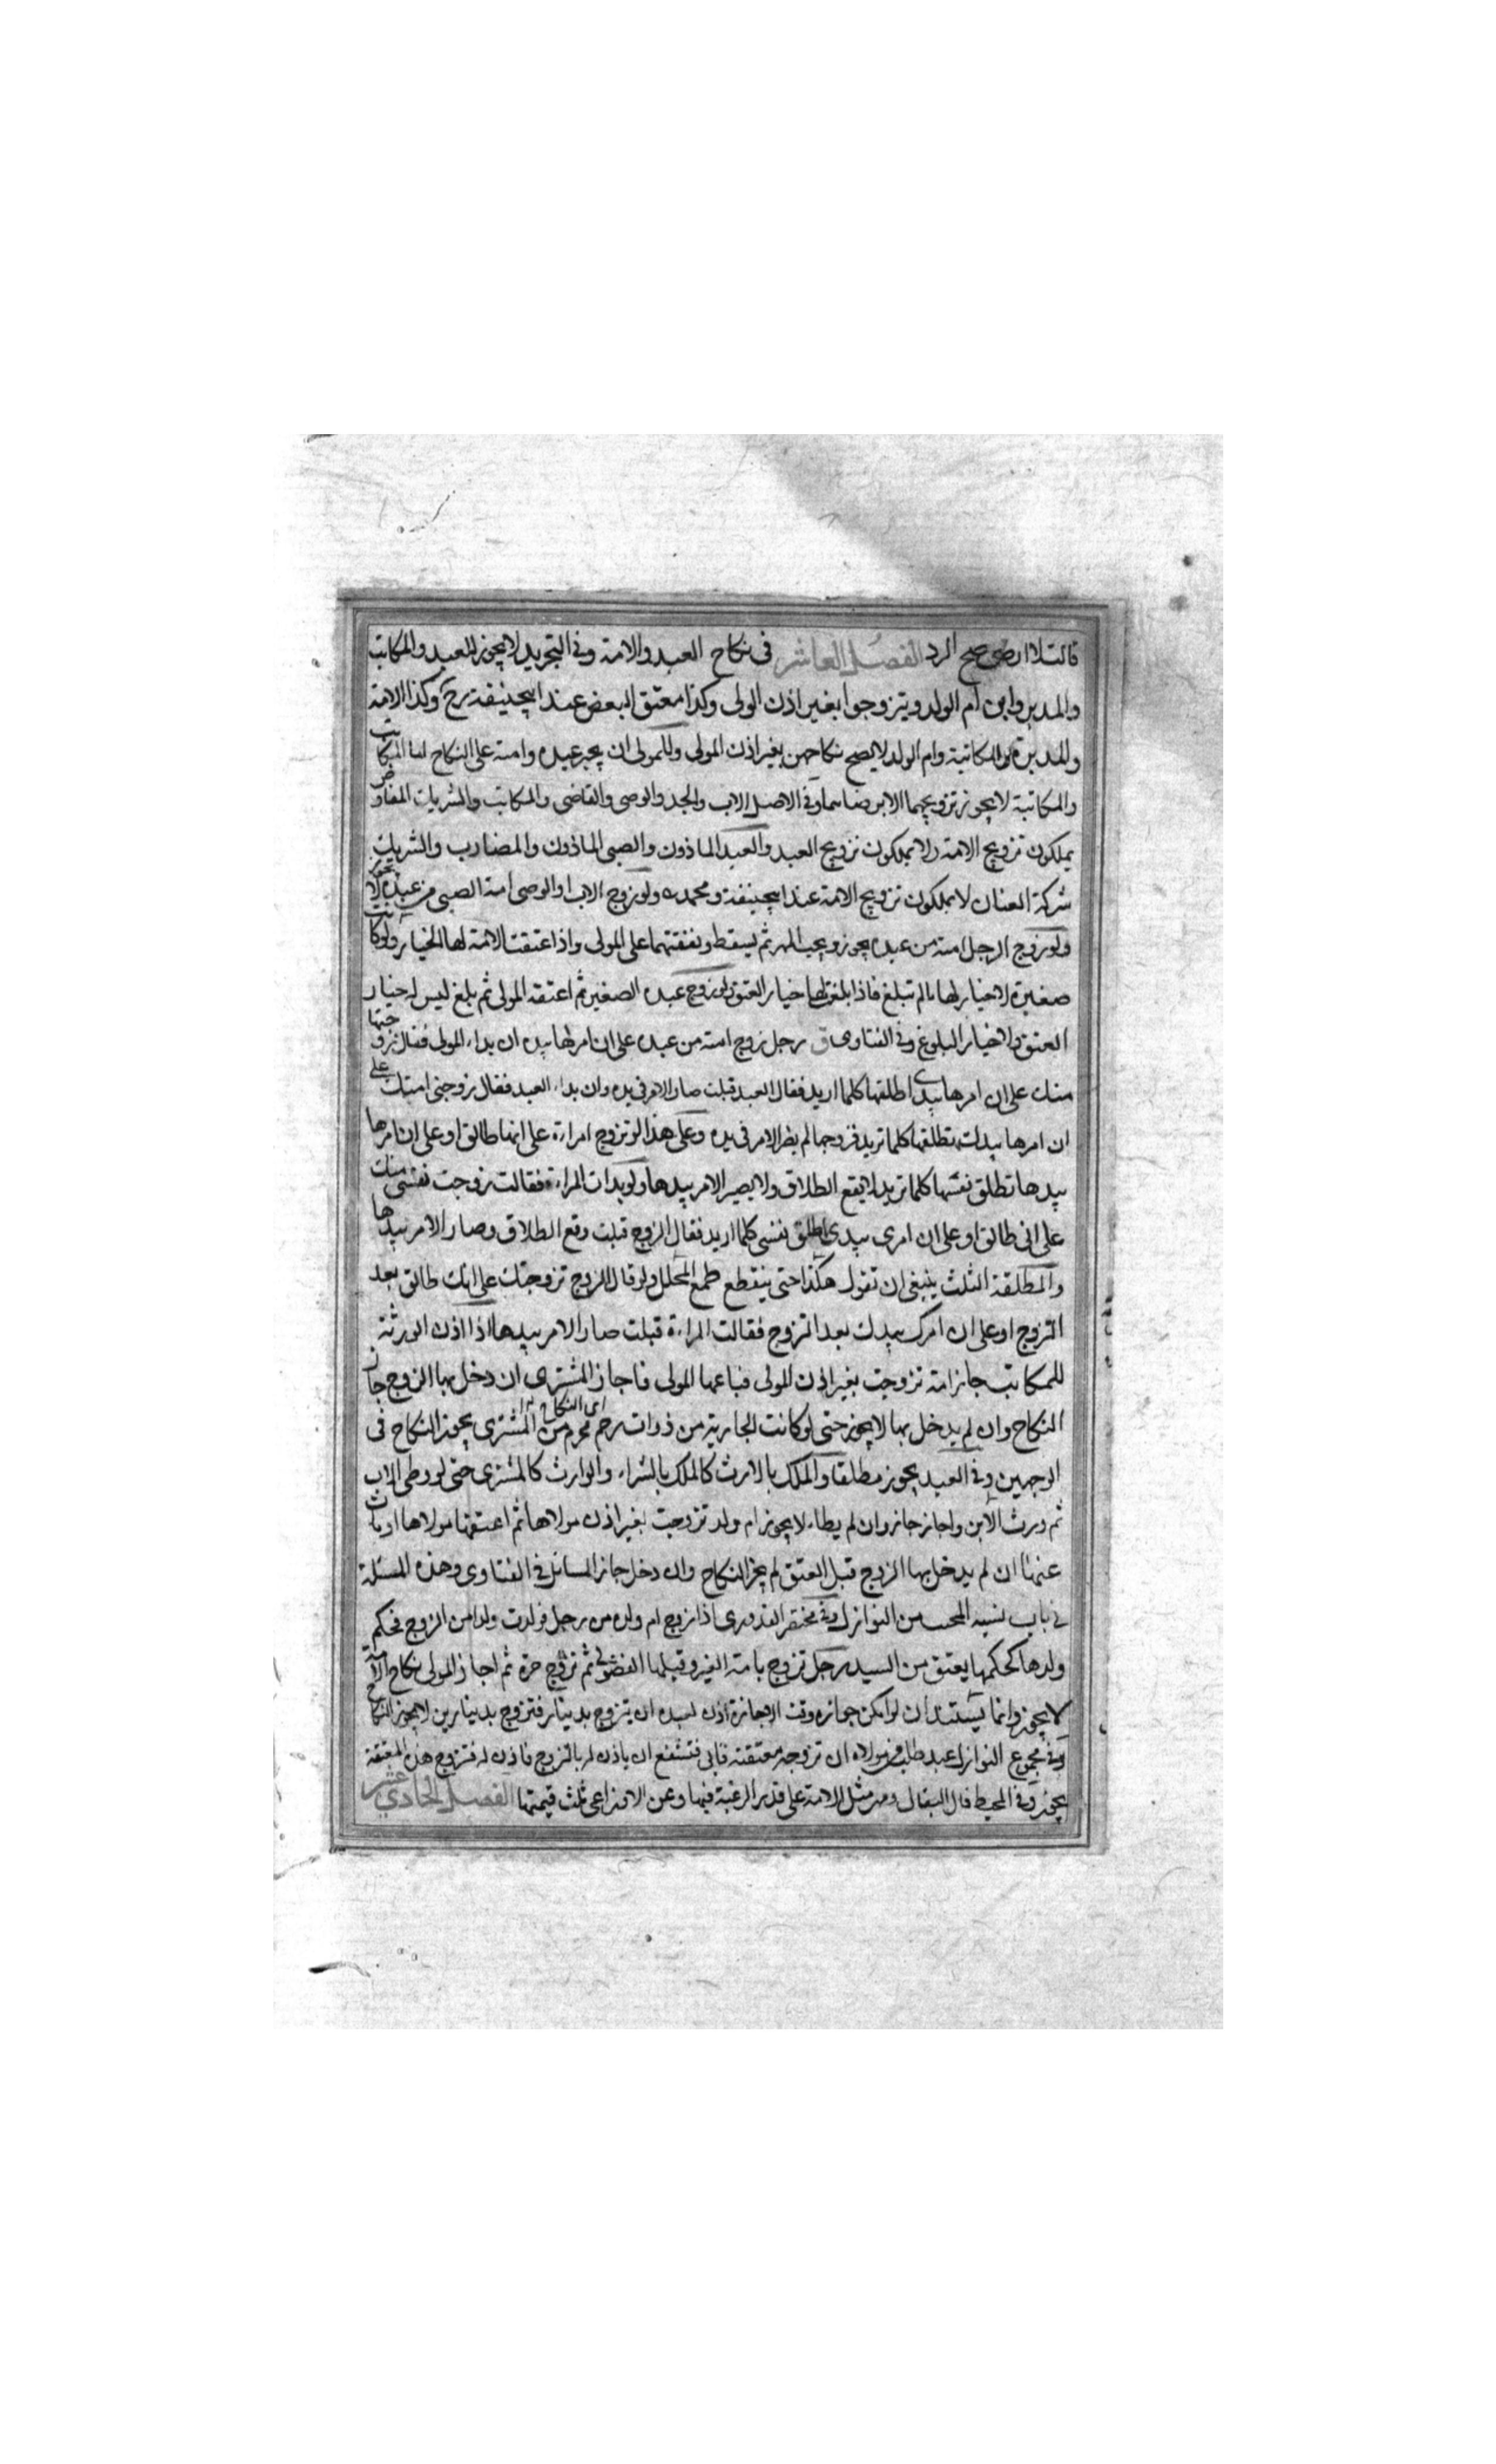 قالت لا ارضى صح الرد الفصل العاشر فى نكاح العبد والامة وفى التجريد لا يجوز للعبد والمكاتب
والمدبر وابن ام الولد ويتزوجوا بغير اذن الولى وكذا معتق البعض عند ابيحنيفة رح وكذا الامة
والمدبرة والمكاتبة وام الولد لا يصح نكاحهن بغير اذن المولى وللمولى ان يجبر عبده وامته على النكاح اما المكاتب
والمكاتبة لا يجوز تزويجهما الا برضاهما وفى الاصل الاب والجد والوصى والقاضى والمكاتب والشريك المفاوض
يملكون تزويج الامة ولا يملكون تزويج العبد والعبد الماذون والصبى الماذون والمضارب والشريك
شركة العنان لا يملكون تزويج الامة عند ابيحنيفة ومحمد ولو زوج الاب او الوصى امة الصبى من عبده لا يجوز
ولو زوج الرجل امته من عبده يجوز ويجب المهر ثم يسقط ونفقتهما على المولى واذا اعتقت الامة لها الخيار ولو كانت
صغيرة لا خيار لها ما لم تبلغ فاذا بلغت لها خيار العتق ولو زوج عبده الصغير ثم اعتقه المولى ثم بلغ ليس له خيار
العتق ولا خيار البلوغ وفى الفتاوى ق رجل زوج امته من عبده على ان امرها بيده ان بداء المولى فقال زوجتها
منك على ان امرها بيدى اطلقها كلما اريد فقال العبد قبلت صار الامر فى يده وان بداء العبد فقال زوجنى امتك على
ان امرها بيدك تطلقها كلما تريد فزوجها لم يصر الامر فى يده وعلى هذا لو تزوج امراءة على انها طالق او على ان امرها
بيدها تطلق نفسها كلما تريد لا يقع الطلاق ولا يصير الامر بيدها ولو بدات المراءة فقالت زوجت نفسى منك
على انى طالق او على ان امرى بيدى اطلق نفسى كلما اريد فقال الزوج قبلت وقع الطلاق وصار الامر بيدها
والمطلقة الثلث ينبغى ان تقول هكذا حتى ينقطع طمع المحلل ولو قال الزوج تزوجتك على انك طالق بعد
التزوج او على ان امرك بيدك بعد التزوج فقالت المراءة قبلت صار الامر بيدها اذا اذن الورثة
للمكاتب جاز امة تزوجت بغير اذن المولى فباعها المولى فاجاز المشترى ان دخل بها الزوج جاز
اى النكاح
النكاح وان لم يدخل بها لا يجوز حتى لو كانت الجارية من ذوات رحم محرم من المشترى يجوز النكاح فى
الوجهين وفى العبد يجوز مطلقا والملك بالارث كالملك بالشراء والوارث كالمشترى حتى لو وطى الاب
ثم ورث الابن واجاز جاز وان لم يطاء لا يجوز ام ولد تزوجت بغير اذن مولاها ثم اعتقها مولاها او مات
عنها ان لم يدخل بها الزوج قبل العتق لم يجز النكاح وان دخل جاز المسائل فى الفتاوى وهذه المسئلة
فى باب من النوازل وفى مختصر القدورى اذا زوج ام ولده من رجل فولدت ولدا من الزوج فحكم
ولدها كحكمها يعتق من السيد رجل تزوج بامة الغير وقبلها الفضولى ثم تزوج حرة ثم اجاز المولى نكاح الامة
لا يجوز وانما يستند ان لو امكن جوازه وقت الاجازة اذن لعبده ان يتزوج بدينار فتزوج بدينارين لا يجوز النكاح
وفى مجموع النوازل عبد طلب من مولاه ان تزوجه معتقته فابى فتشفع ان ياذن له بالتزوج فاذن له فتزوج هذه المعتقة
يجوز وفى المحيط قال البقالى ومهر مثل الامة على قدر الرغبة فيها وعن الاوزاعى ثلث قيمتها الفصل الحادي عشر